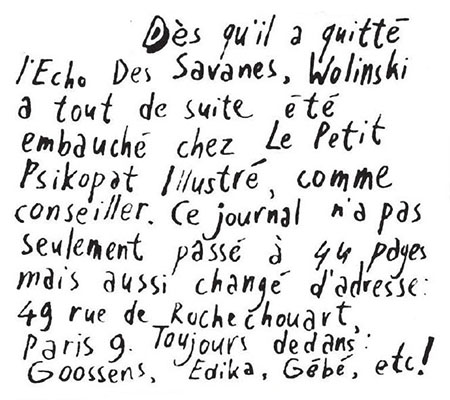 Dès qu'il a quitté
l'Echo Des Savanes, Wolinski
a tout de suite été
embauché chez Le Petit
Psikopat Illustré, comme
conseiller. Ce journal n'a pas
seulement passé à 44 pages
mais aussi changé d'adresse:
49 rue de Rochechouart,
Paris 9. Toujours dedans:
Goossens, Edika, Gébé, etc!